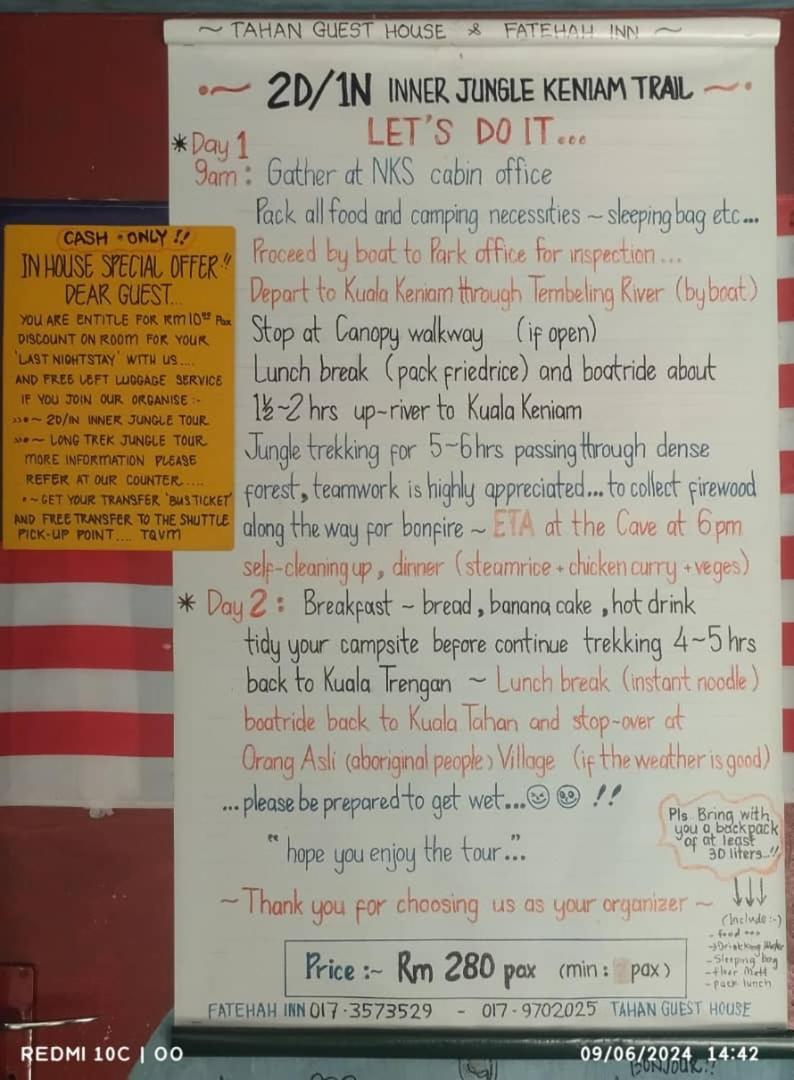 ~ TAHAN GUEST HOUSE & FATEHAH INN ~
2D/1N INNER JUNGLE KENIAM TRAIL
LET'S DO IT...
* Day 1
9am : Gather at NKS cabin office
Pack all food and camping necessities ~ sleeping bag etc...
Proceed by boat to Park office for inspection...
Depart to Kuala Keniam through Tembeling River (by boat)
Stop at Canopy walkway (if open)
Lunch break (pack friedrice) and boatride about
1½~2 hrs up-river to Kuala Keniam
Jungle trekking for 5~6hrs passing through dense
forest, teamwork is highly appreciated... to collect firewood
along the way for bonfire ~ ETA at the Cave at 6pm
self-cleaning up, dinner (steamrice + chicken curry + veges)
* Day 2 : Breakfast ~ bread, banana cake, hot drink
tidy your campsite before continue trekking 4~5 hrs
back to Kuala Trengan ~ Lunch break (instant noodle)
boatride back to Kuala Tahan and stop-over at
Orang Asli (aboriginal people) Village (if the weather is good)
...please be prepared to get wet... !!
"hope you enjoy the tour..."
~ Thank you for choosing us as your organizer ~
Price :~ Rm 280 pax (min : pax)
FATEHAH INN 017-3573529 - 017-9702025 TAHAN GUEST HOUSE
Pls Bring with
you a backpack
of at least
30 liters...!!
(Include :-)
- food
- Drinking Water
- Sleeping bag
- floor Matt
- pack lunch
CASH - ONLY !!
IN HOUSE SPECIAL OFFER!!
DEAR GUEST...
YOU ARE ENTITLE FOR RM10 Pax
DISCOUNT ON ROOM FOR YOUR
'LAST NIGHTSTAY' WITH US....
AND FREE LEFT LUGGAGE SERVICE
IF YOU JOIN OUR ORGANISE :-
»•~ 2D/1N INNER JUNGLE TOUR
»•~ LONG TREK JUNGLE TOUR
MORE INFORMATION PLEASE
REFER AT OUR COUNTER....
•~ GET YOUR TRANSFER 'BUSTICKET'
AND FREE TRANSFER TO THE SHUTTLE
PICK-UP POINT.... TQVM
BONJOUR!!
REDMI 10C | OO
09/06/2024 14:42